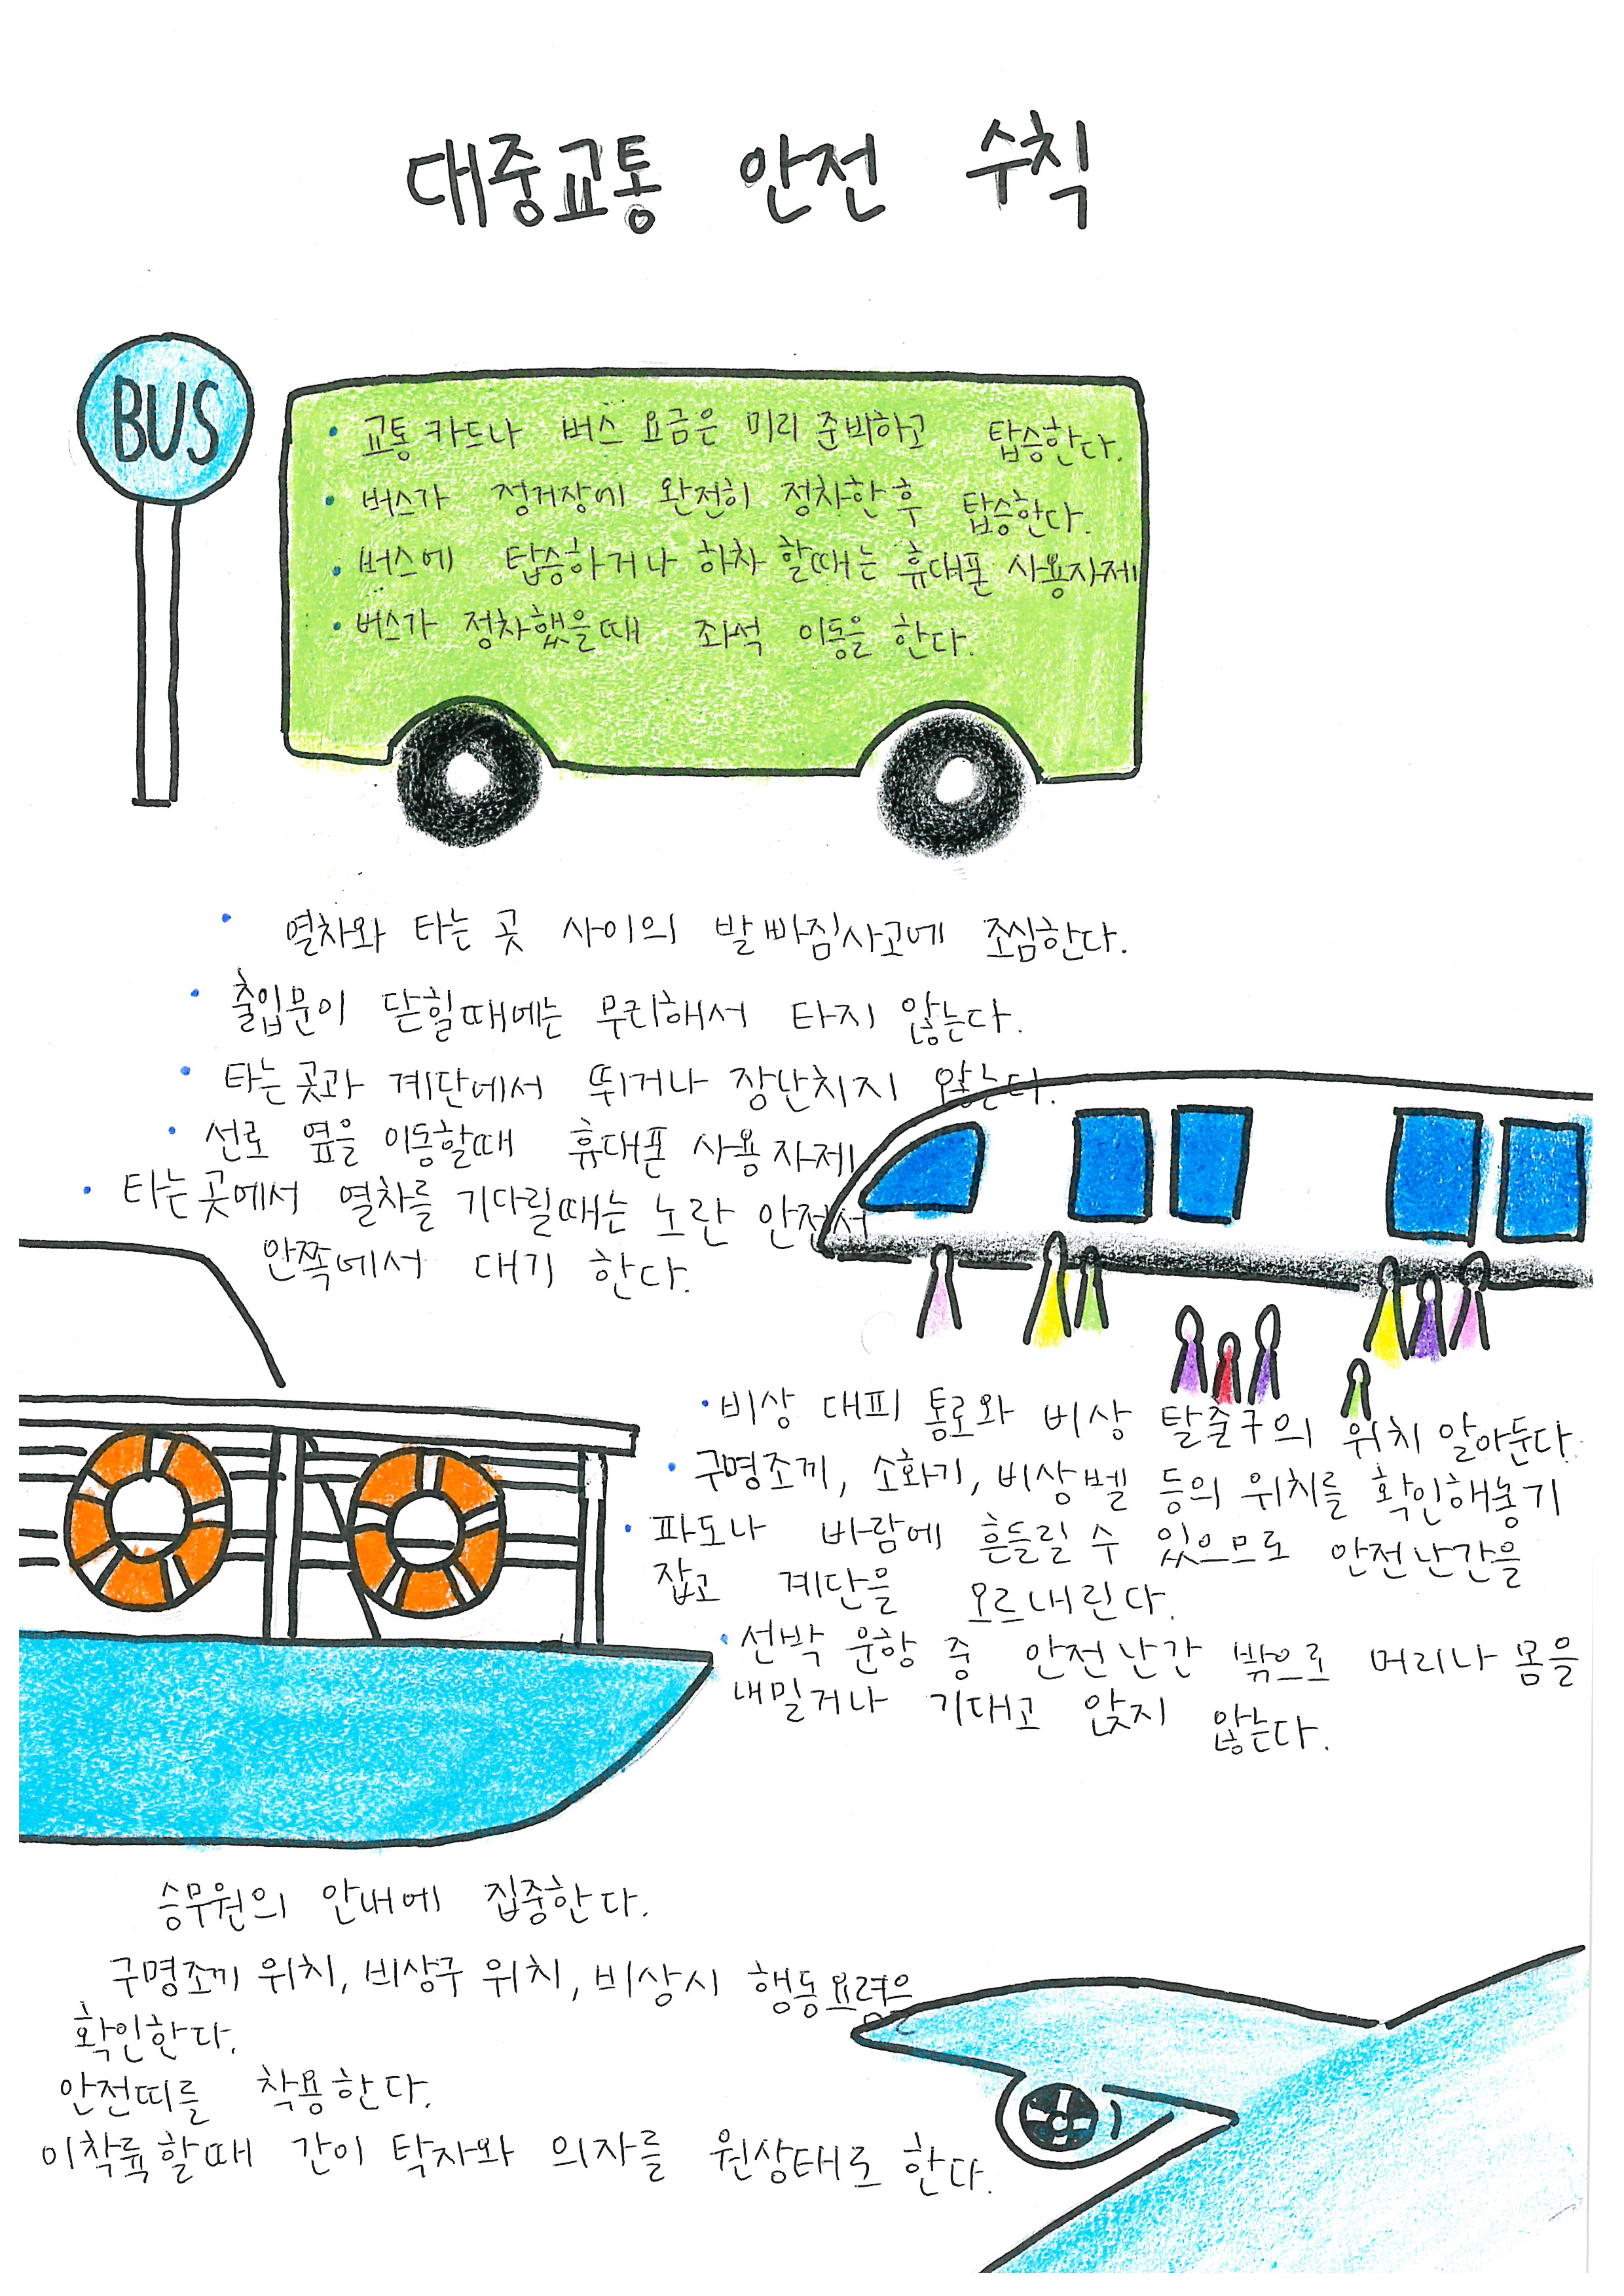 대중교통 안전 수칙
BUS
• 교통카드나 버스 요금은 미리 준비하고 탑승한다.
• 버스가 정거장에 완전히 정차한후 탑승한다.
• 버스에 탑승하거나 하차 할때는 휴대폰 사용자제
• 버스가 정차했을때 좌석 이동을 한다.
• 열차와 타는 곳 사이의 발빠짐사고에 조심한다.
• 출입문이 닫힐때에는 무리해서 타지 않는다.
• 타는곳과 계단에서 뛰거나 장난치지 않는다.
• 선로 옆을 이동할때 휴대폰 사용자제
• 타는곳에서 열차를 기다릴때는 노란 안전서
안쪽에서 대기 한다.
• 비상 대피 통로와 비상 탈출구의 위치 알아둔다.
• 구명조끼, 소화기, 비상벨 등의 위치를 확인해놓기
• 파도나 바람에 흔들릴 수 있으므로 안전난간을
잡고 계단을 오르내린다.
• 선박 운항 중 안전난간 밖으로 머리나 몸을
내밀거나 기대고 앉지 않는다.
승무원의 안내에 집중한다.
구명조끼 위치, 비상구 위치, 비상시 행동요령은
확인한다.
안전띠를 착용한다.
이착륙할때 간이 탁자와 의자를 원상태로 한다.